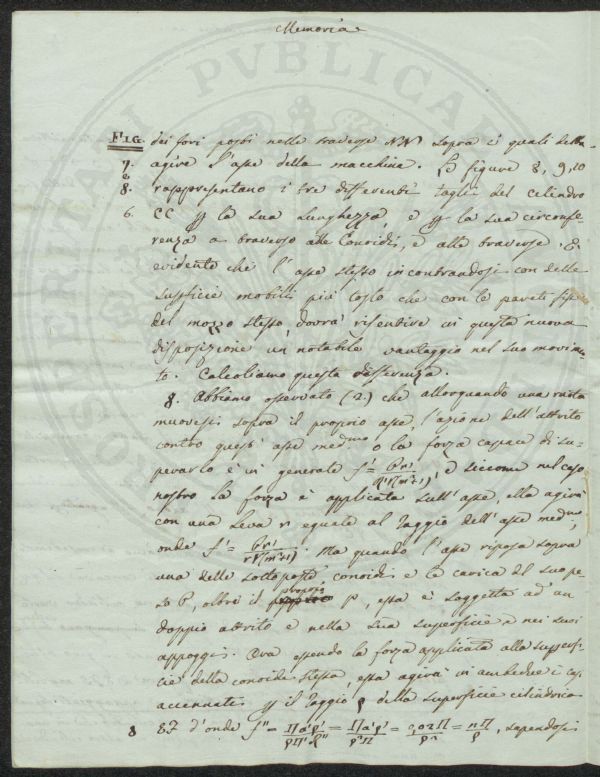 Memoria
FIG. dei fori posti nelle traverse NN sopra i quali
7. agire l'asse della macchina. Le figure 8, 9, 10
e
8. rappresentano i tre differenti tagli del cilindro
6. CC la sua lunghezza, e la sua circonfe-
renza a traverso alle Conoidi, e alla traverse. E'
evidente che l'asse stesso incontrandosi con delle
superficie mobili più tosto che con le pareti fisse
del mozzo stesso, dovrà risentire in questa nuova
disposizione un notabile vantaggio nel suo movimen-
to. Calcoliamo questa differenza.
8. Abbiamo osservato (2.) che allorquando una ruota
muovesi sopra il proprio asse, l'azione dell'attrito
contro quest'asse medmo o la forza capace di su-
perarlo è in generale f' = , e siccome nel caso
nostro la forza è applicata sull'asse, ella agirà
con una leva r eguale al raggio dell'asse medmo,
onde f' = . Ma quando l'asse riposa sopra
una delle sottoposte conoidi e la carica del suo pe-
so P, oltre il proprio p, essa è soggetta ad un
doppio attrito e nella sua superficie e nei suoi
appoggi. Ora essendo la forza applicata alla superfi-
cie della conoide stessa, essa agirà in ambedue i casi
accennati il raggio ρ della superficie cilindrica
8 EF d'onde f'' = , sapendosi